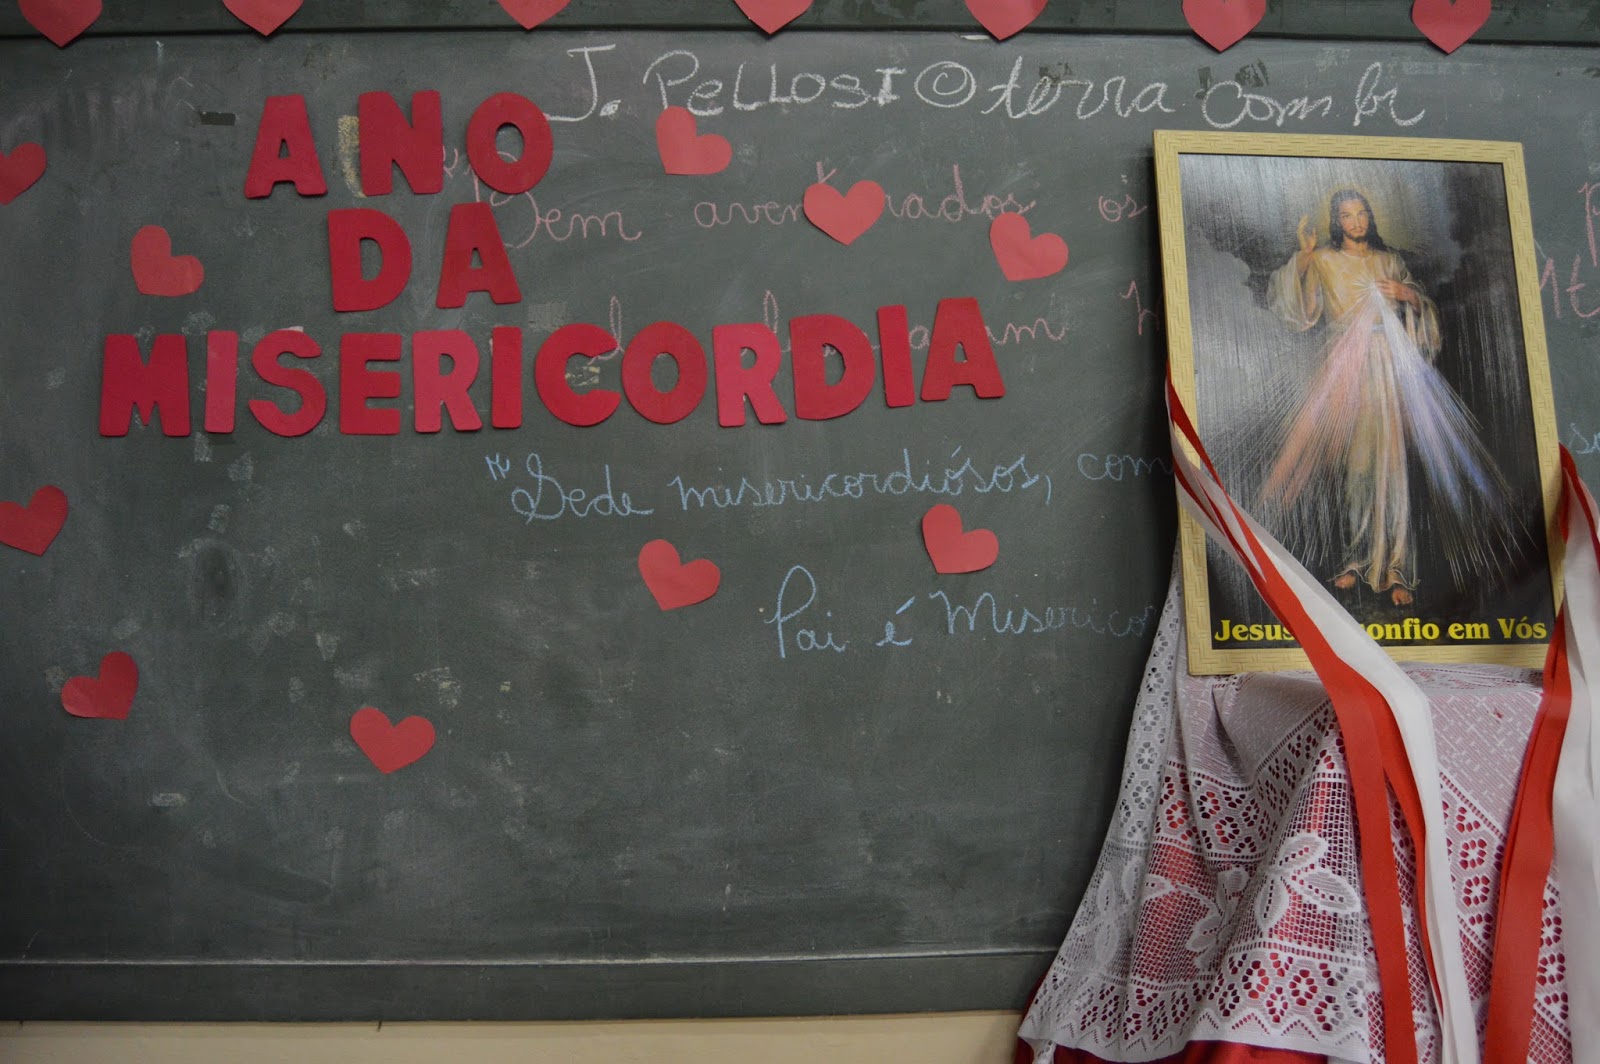 J. PELLOSI@terra.com.br
ANO
DA
MISERICORDIA
"Bem aventurados os
"Sede misericordiósos, com
Pai é Miserico
Jesus onfio em Vós